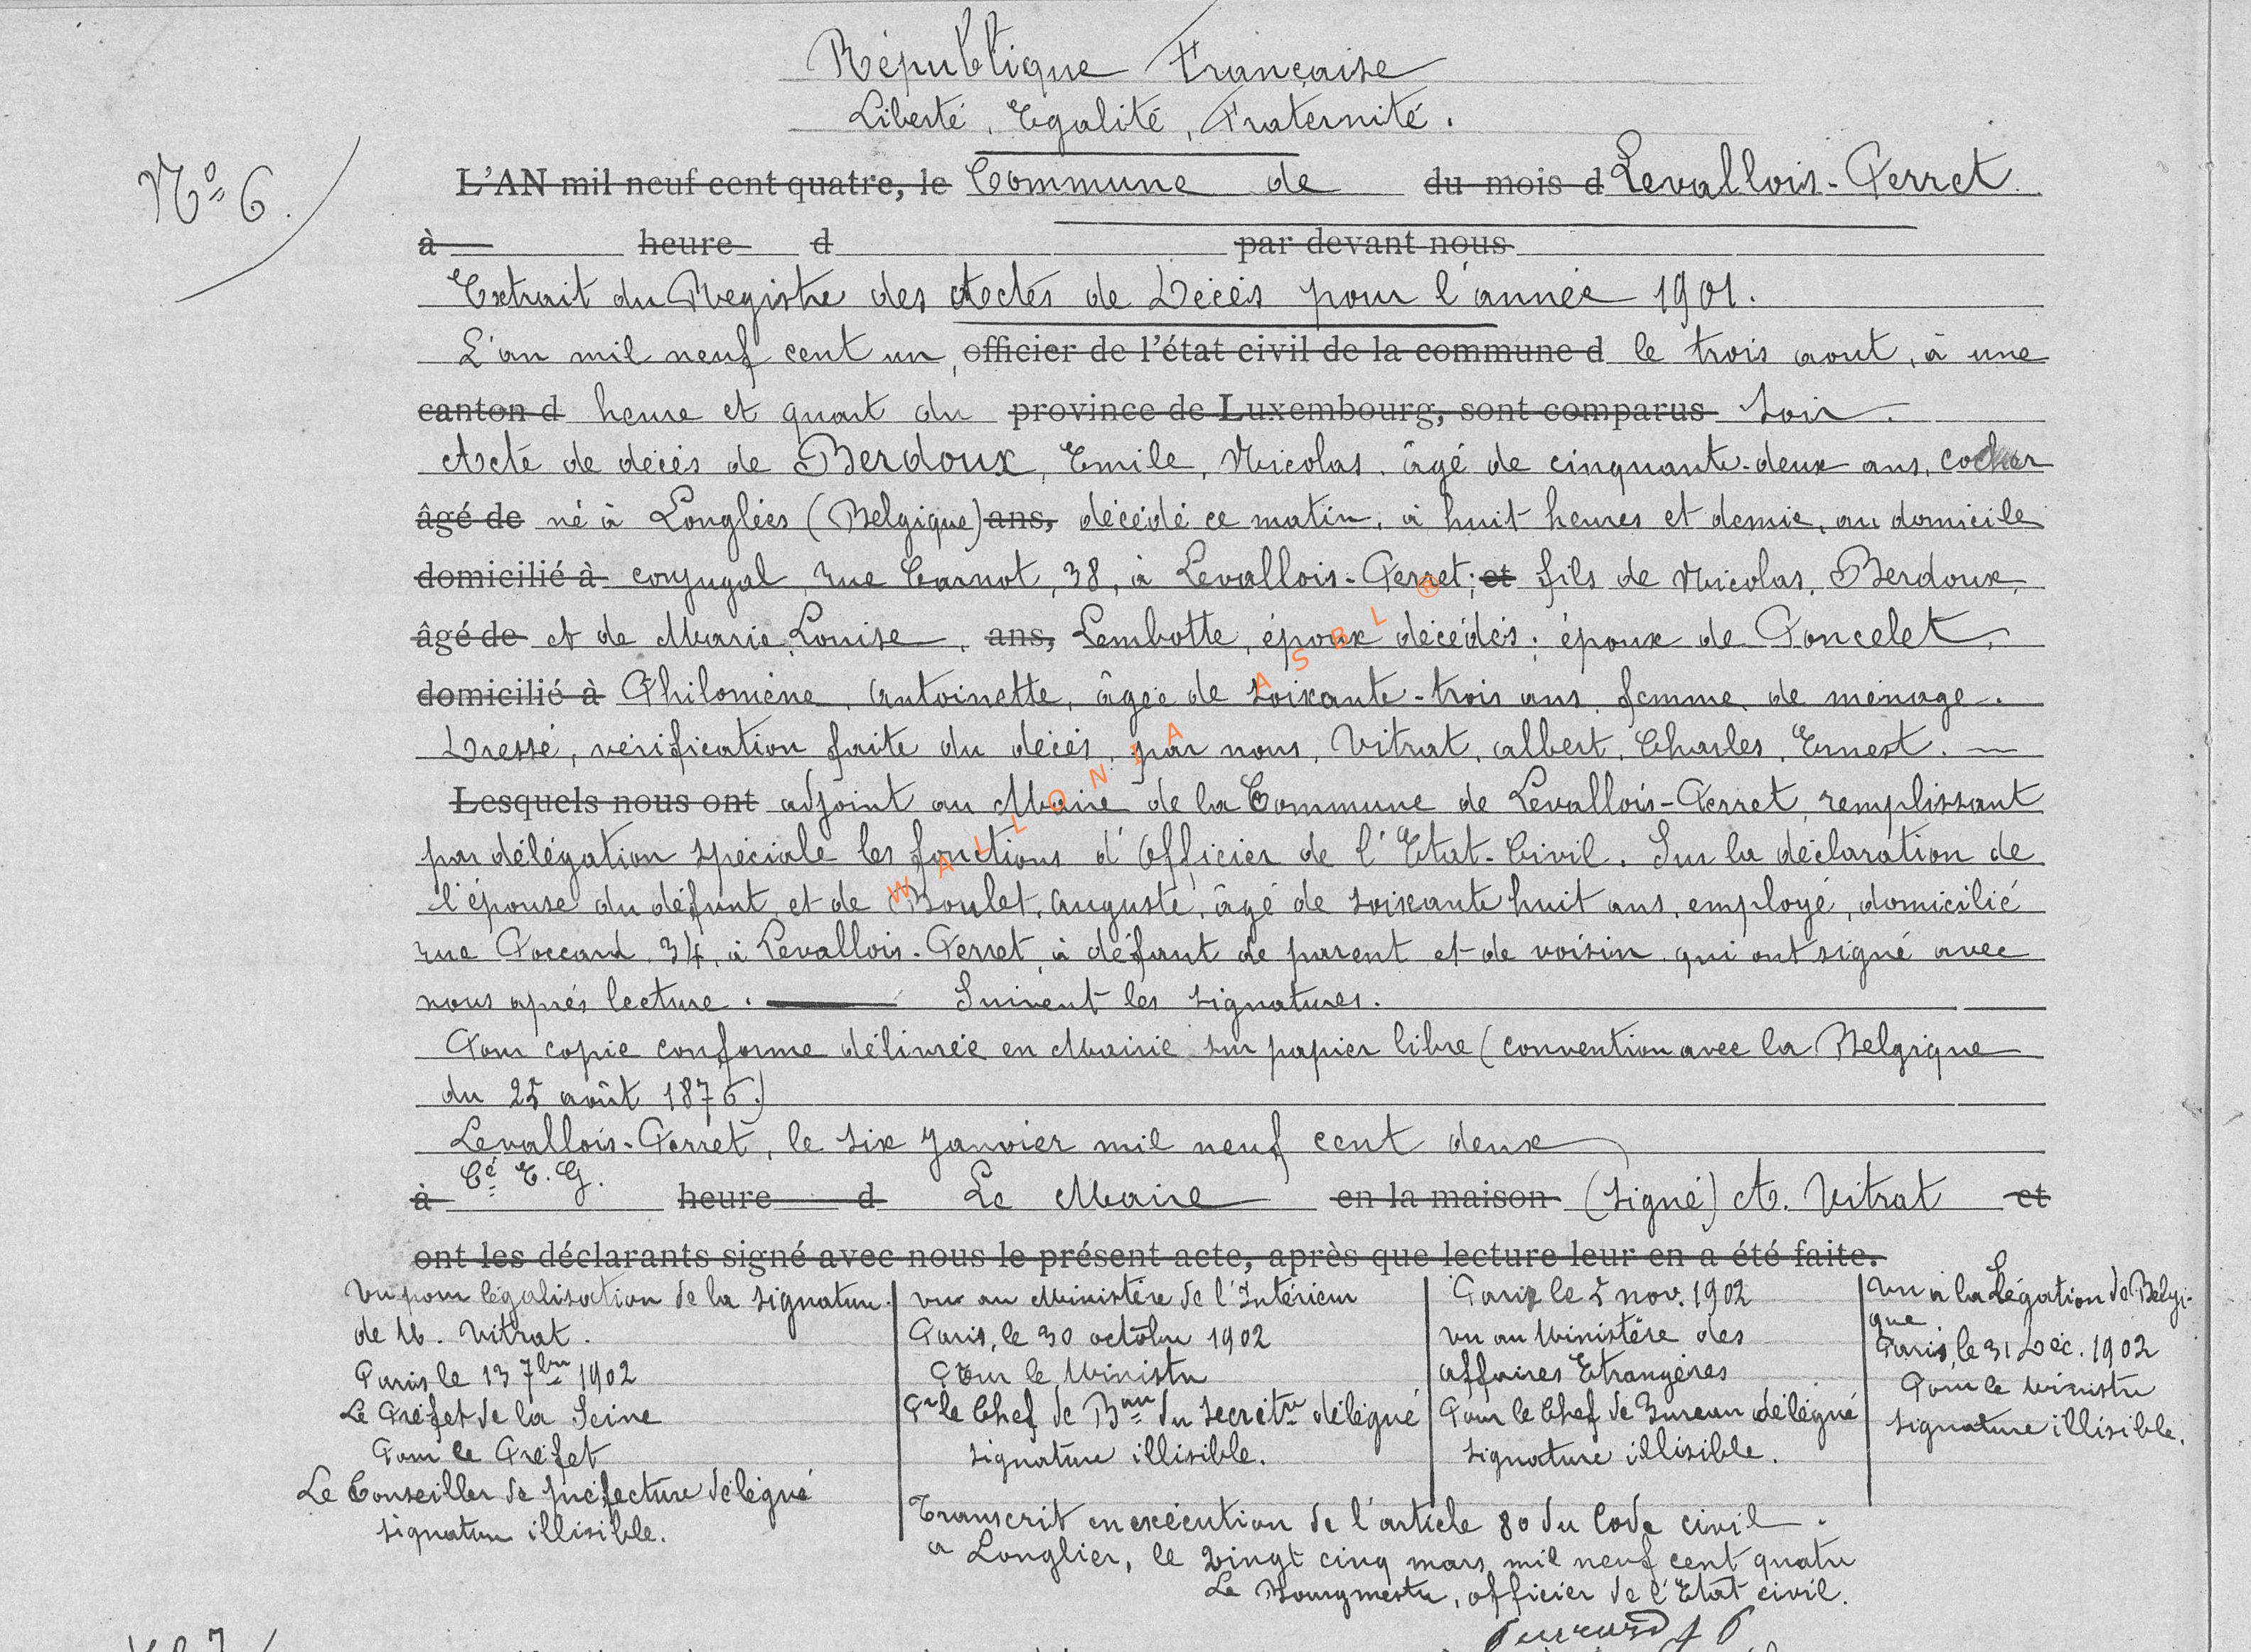 République Française
Liberté, Egalité, Fraternité.
N° 6.
L'AN mil neuf cent quatre, le Commune de du mois d Levallois-Perret
à heure d par devant nous
Extrait du Registre des Actes de Décès pour l'année 1901.
L'an mil neuf cent un, officier de l'état civil de la commune d le trois aout, à une
canton d heure et quart du province de Luxembourg, sont comparus soir.
Acte de décès de Berdoux, Emile, Nicolas. âgé de cinquante-deux ans, cocher
âgé de né à Longliés (Belgique) ans, décédé ce matin, à huit heures et demie, au domicile
domicilié à conjugal, rue Carnot, 38, à Levallois-Perret; et fils de Nicolas, Berdoux,
âgé de et de Marie Louise, ans, Lembotte, époux décédés; époux de Poncelet,
domicilié à Philomène, Antoinette, âgée de soixante-trois ans, femme de ménage.
Dressé, vérification faite du décès, par nous, Vitrat, Albert, Charles, Ernest.
Lesquels nous ont adjoint au Maire de la Commune de Levallois-Perret, remplissant
par délégation spéciale les fonctions d'Officier de l'Etat-Civil. Sur la déclaration de
l'épouse du défunt et de Boulet, Auguste, âgé de soixante huit ans, employé, domicilié
rue Poccard, 34, à Levallois-Perret, à défaut de parent et de voisin, qui ont signé avec
nous après lecture. Suivent les signatures.
Pour copie conforme délivrée en Mairie sur papier libre (convention avec la Belgique
du 25 août 1876.)
Levallois-Perret, le six Janvier mil neuf cent deux
Cé E. G.
à heure d Le Maire en la maison (signé) A. Vitrat et
ont les déclarants signé avec nous le présent acte, après que lecture leur en a été faite.
Vu pour légalisation de la signature
de M. Vitrat.
Paris le 13 7bre 1902
Le Préfet de la Seine
Pour le Préfet
Le Conseiller de préfecture délégué
signature illisible.
vu au Ministère de l'Intérieur
Paris, le 30 octobre 1902
Pour le Ministre
Pr le Chef de Beau du secrétre délégué
signature illisible.
Paris le 5 nov. 1902
vu au Ministère des
affaires Etrangères
Pour le Chef de Bureau délégué
signature illisible.
Vu à la Légation de Belgi-
que
Paris, le 31 Déc. 1902
Pour le Ministre
signature illisible.
Transcrit en exécution de l'article 80 du Code civil.
a Longlier, le vingt cinq mars mil neuf cent quatre
Le Bourgmestre, officier de l'Etat civil.
WALLONIA ASBL ®